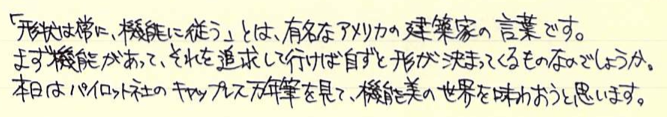 「形状は常に、機能に従う」とは、有名なアメリカの建築家の言葉です。
まず機能があって、それを追求して行けば自ずと形が決まってくるものなのでしょうか。
本日はパイロット社のキャップレス万年筆を見て、機能美の世界を味わおうと思います。